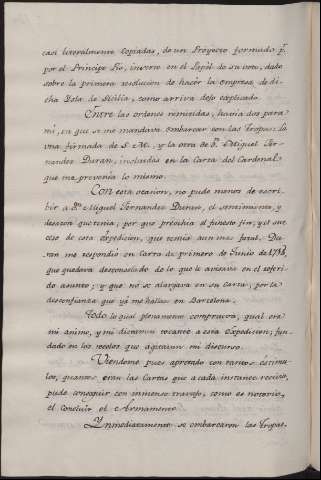 casi literalmente Copiadas, de un Proyecto formado pr.
por el Principe Pio, inverso en el Papel de su voto, dado
sobre la primera resolucion de hacer la empresa de di-
cha Ysla de Sicilia, como arriva dejo explicado.
Entre las ordenes remitidas, havia dos para
mi, en que se me mandava embarcar con las Tropas: la
una firmada de S. M., y la otra de Dn. Miguel Fer-
nandez Duran, incluidas en la Carta del Cardenal
que me prevenia lo mismo.
Con esta ocasion, no pude menos de escri-
bir a Dn. Miguel Fernandez Duran, el sentimiento, y
desazon que tenia, por que prevehia el funesto fin, y el suc-
ceso de esta Expedicion, que temia aun mas fatal. Du-
ran me respondio en Carta de primero de Junio de 1718,
que quedava desconsolado de lo que le avisava en el referi-
do asunto; y que no se alargava en su Carta, por la
desconfianza que yá me hallase en Barcelona.
Todo lo qual plenamente comprueva, qual era
mi animo, y mi dictamen tocante a esta Expedicion; fun-
dado en los recelos que agitavan mi discurso.
Viendome pues apretado con tantos estimu-
los, quantos eran las Cartas que a cada instante recivia,
pude conseguir con inmenso travajo, como es notorio,
el concluir el Armamento.
Ynmediatamente se embarcaron las Tropas.